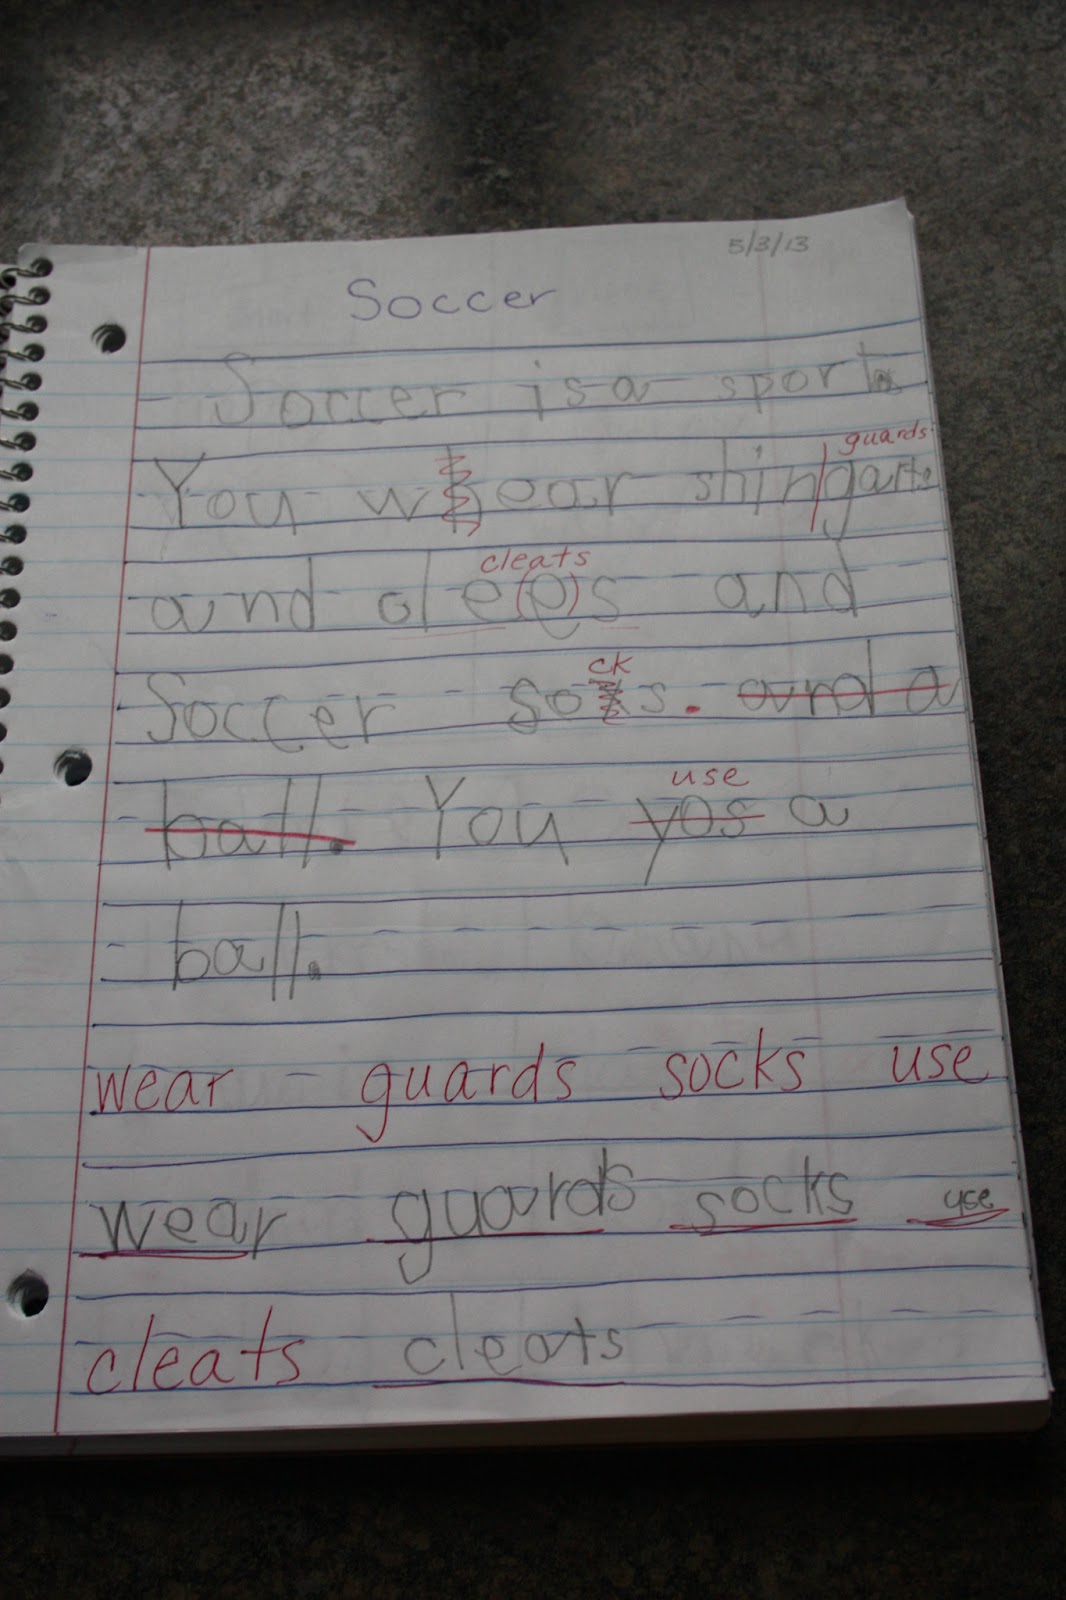 5/3/13
Soccer
Soccer is a sport.
guards
You wear shingarts
cleats
and cleens and
ck
Soccer so s. and a
use
ball. You yos a
ball.
wear guards socks use
wear guards socks use
cleats cleats